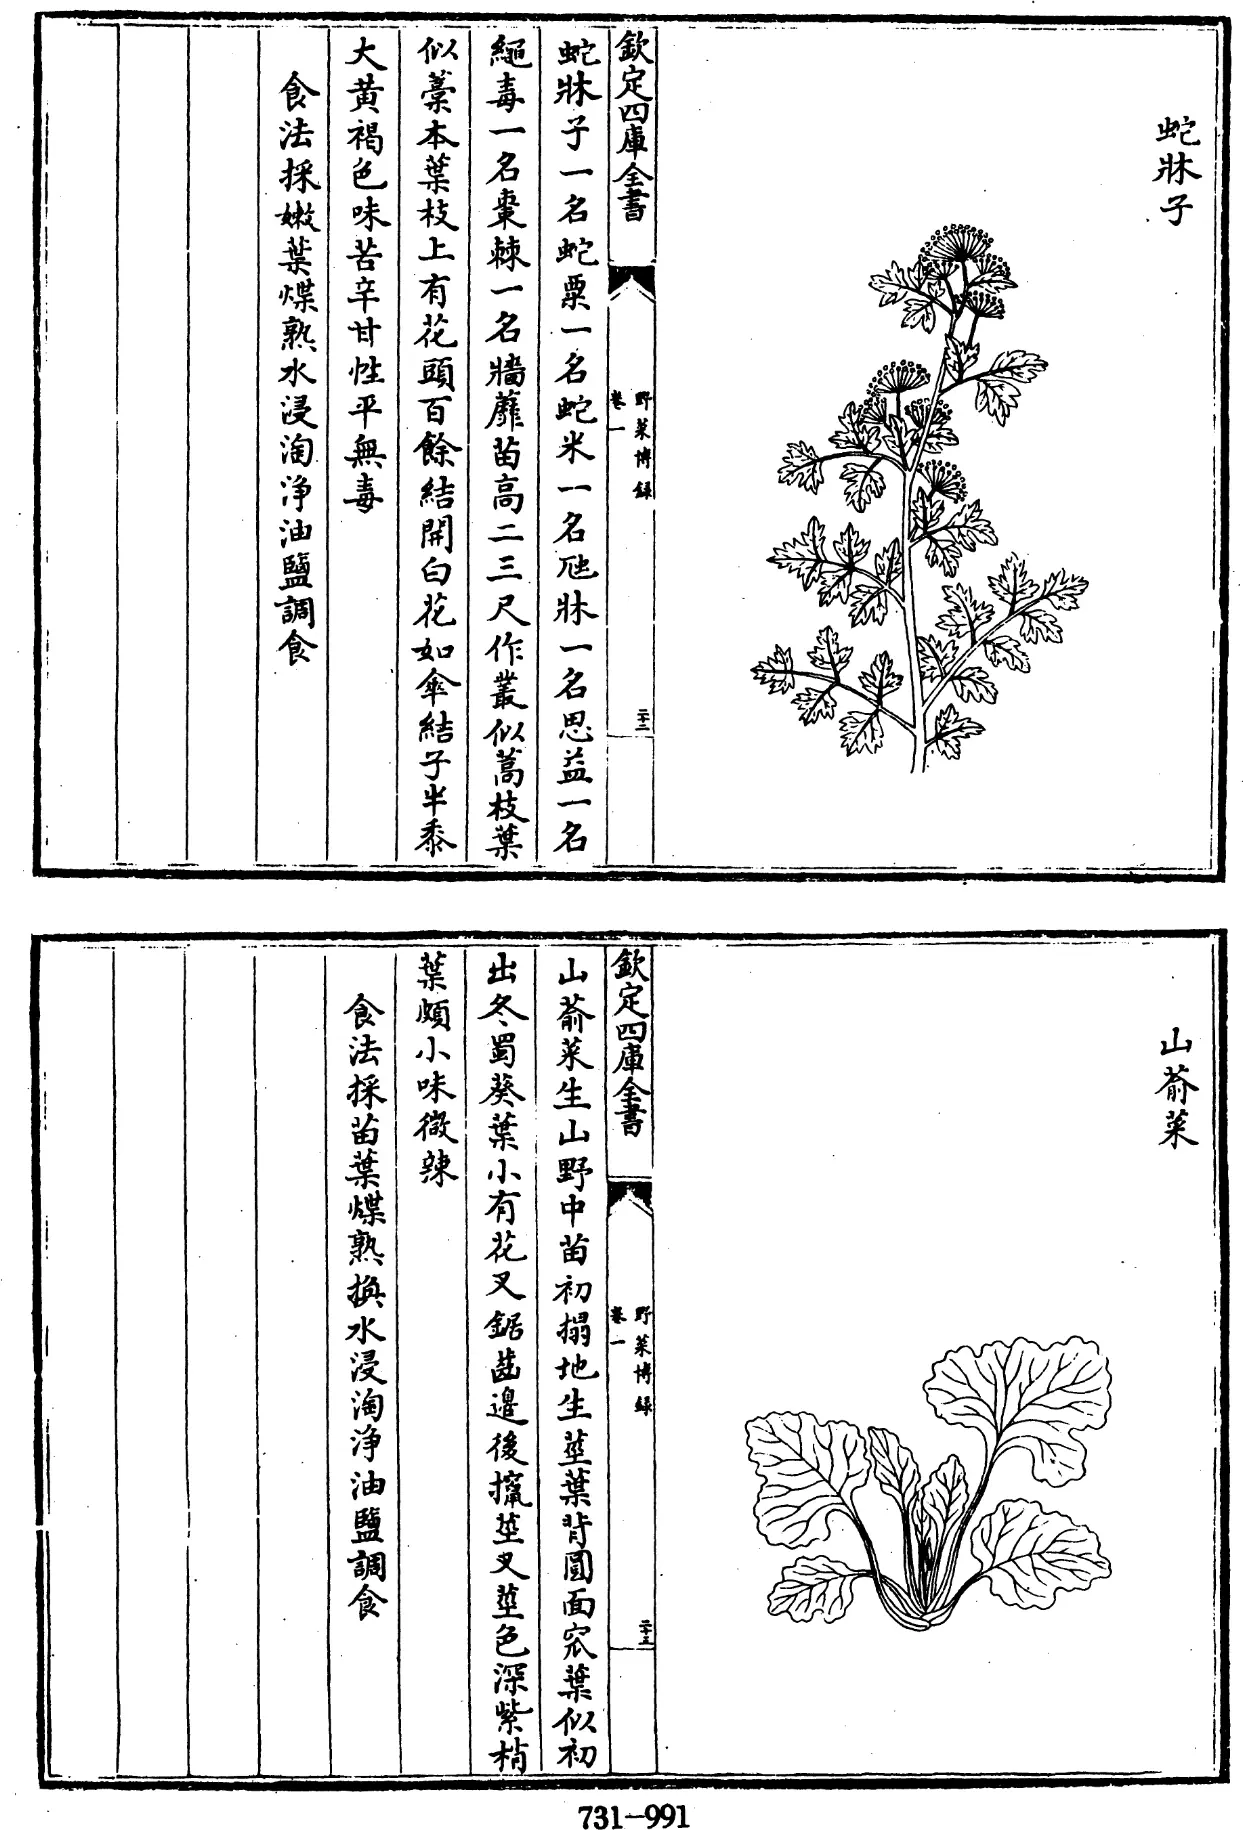 蛇牀子
欽定四庫全書
野菜博録
卷一
二十二
蛇牀子一名蛇粟一名蛇米一名虺牀一名思益一名
繩毒一名棗棘一名牆蘼苗高二三尺作叢似蒿枝葉
似藁本葉枝上有花頭百餘結開白花如傘結子半黍
大黄褐色味苦辛甘性平無毒
食法採嫩葉煠熟水浸淘浄油鹽調食
山萮菜
欽定四庫全書
野菜博録
卷一
二十三
山萮菜生山野中苗初搨地生莖葉背圓面窊葉似初
出冬蜀葵葉小有花叉鋸齒邉後攛莖叉莖色深紫梢
葉頗小味微辣
食法採苗葉煠熟換水浸淘浄油鹽調食
731-991